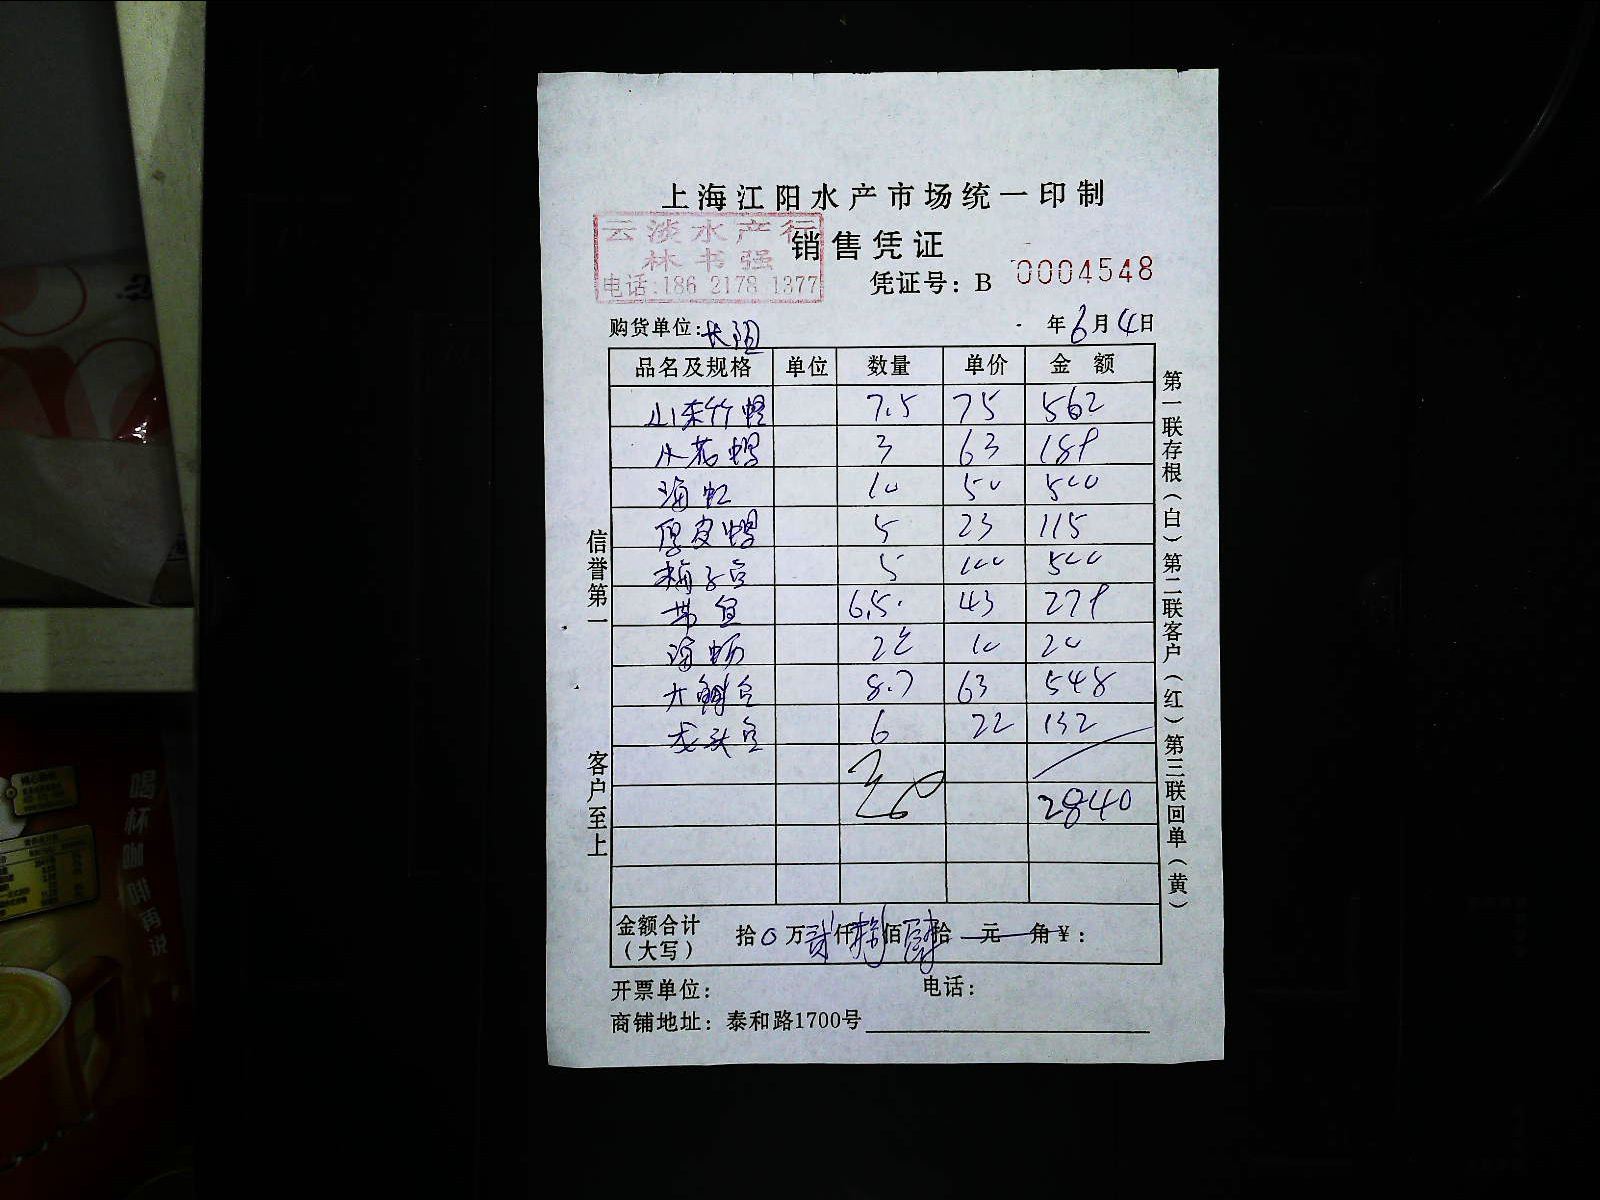 上海江阳水产市场统一印制
云淡水产行
林书强
电话:186 2178 1377
销售凭证
凭证号：B 0004548
购货单位: 长阳 年6月4日
品名及规格 单位 数量 单价 金额
山东竹蛏 7.5 75 562
水花蛤 3 63 189
海虹 10 50 500
厚皮蛤 5 23 115
梅子鱼 5 100 500
带鱼 6.5 43 279
海蛎 2 10 20
大鲫鱼 8.7 63 548
龙头鱼 6 22 132
2840
金额合计（大写） 拾0万贰仟捌佰肆拾元角¥：
开票单位： 电话：
商铺地址：泰和路1700号
信誉第一
客户至上
第一联存根（白）第二联客户（红）第三联回单（黄）
喝杯咖啡再说